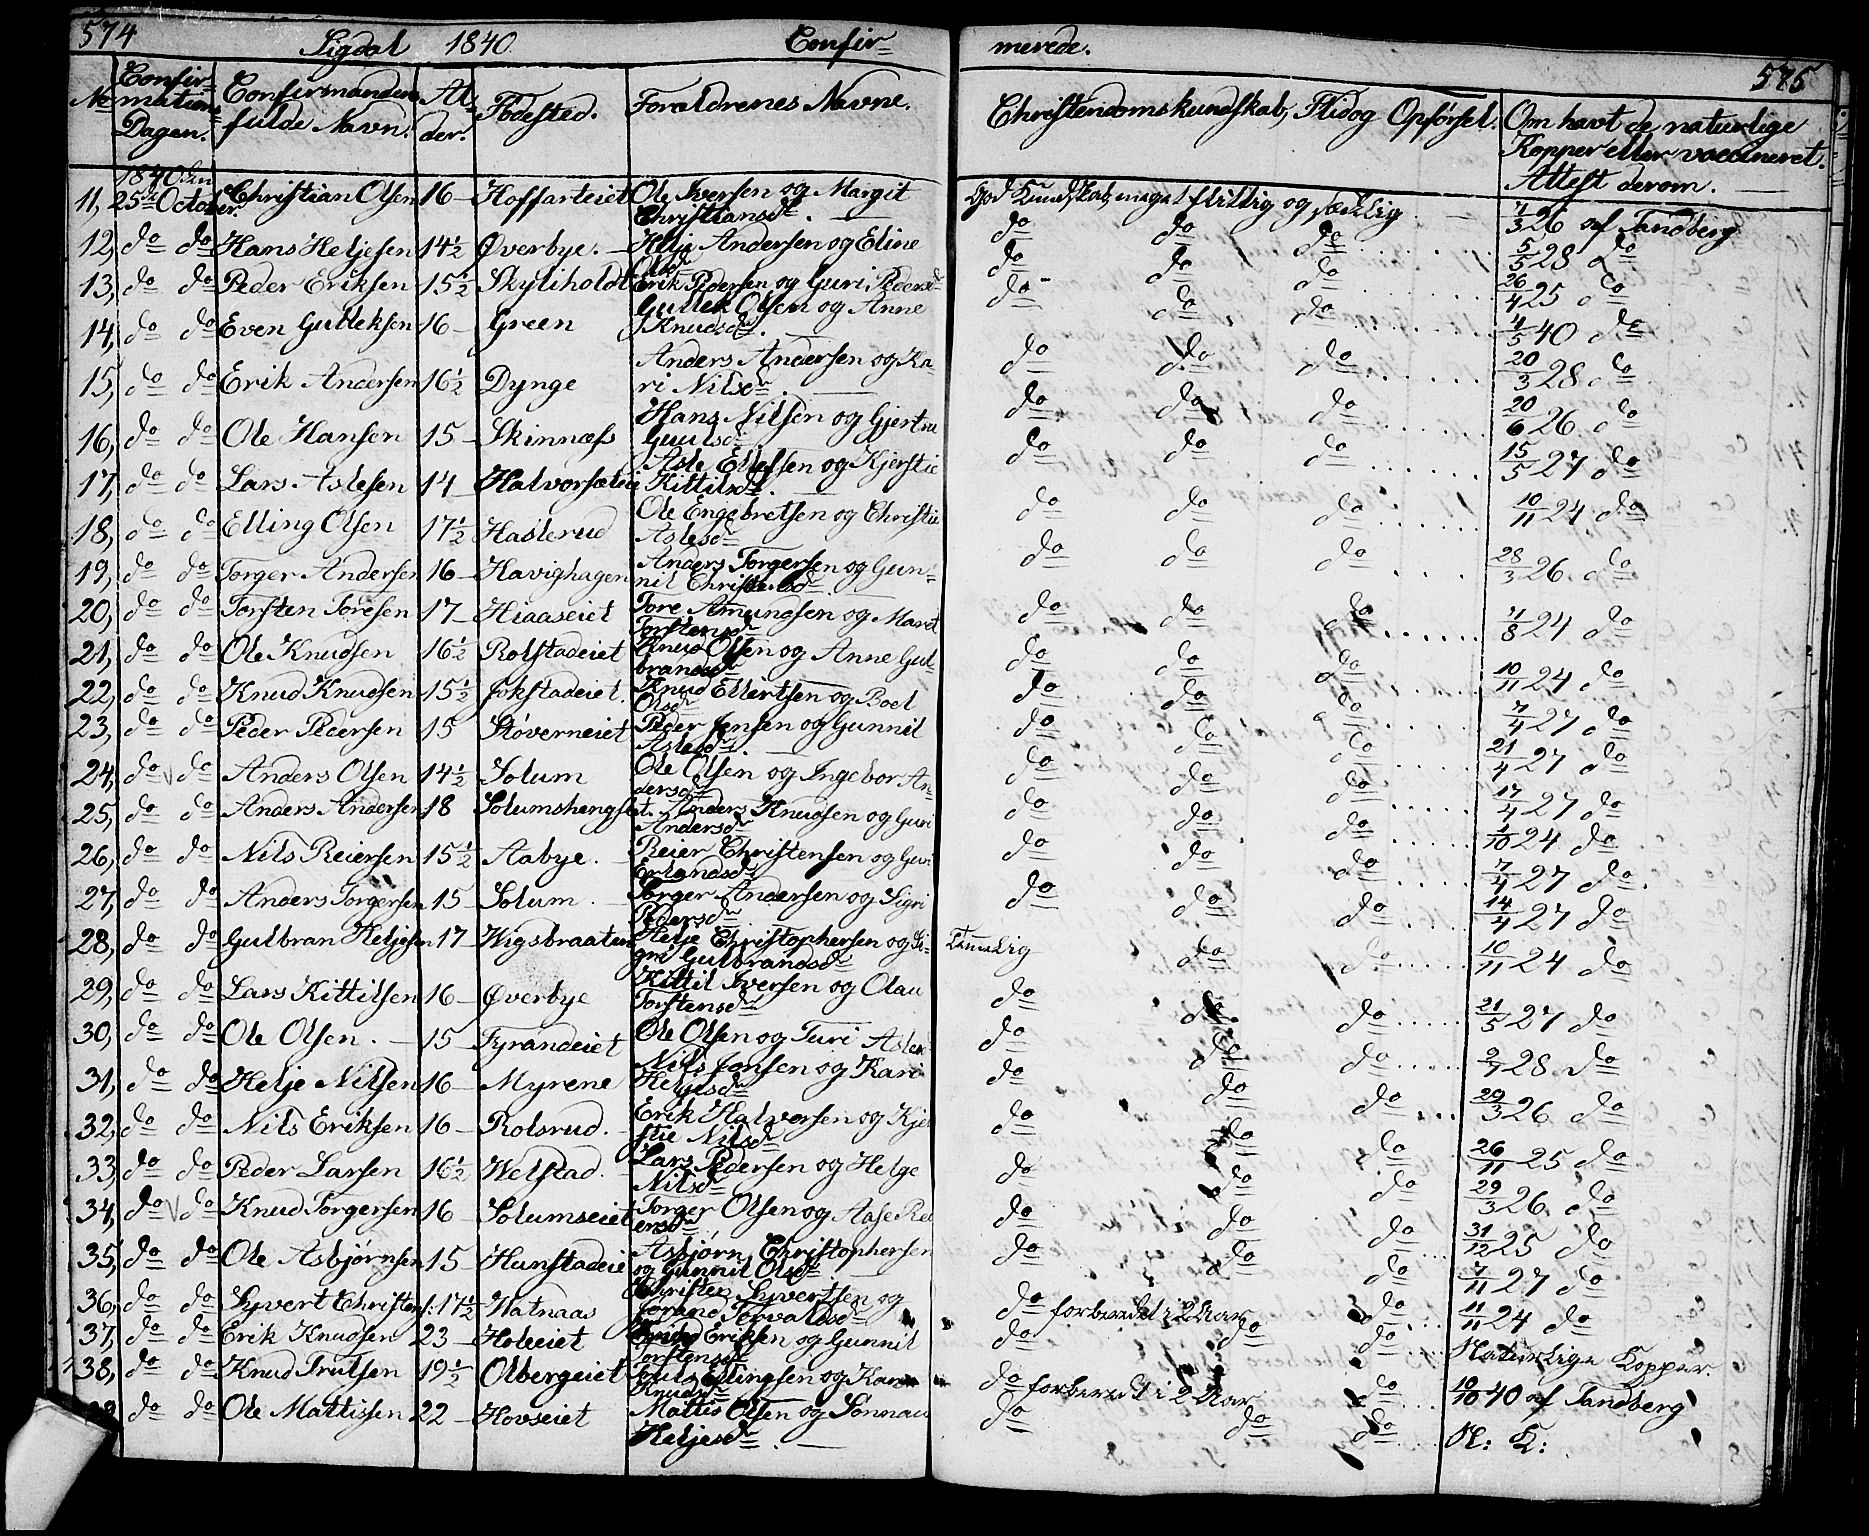 574 Sigdal 1840 Confir= merede. 575
No Confir= mations Dagen. Confirmandens fulde Navn. Al= der. Fødested. Forældrenes Navne. Christendomskundskab, Flid og Opførsel. Om havt de naturlige Kopper eller vaccineret. Attest derom.
1840 den
11, 25de October. Christian Olsen 16 – Hoffarteiet Ole Iversen og Margit Christiansdr. God Kundskab meget flittig og sædelig 7/3 26 af Tandberg
12, do do Hans Heljesen 14½ Øverbye. – Helje Andersen og Eline Olsdr do do do 5/5 28 do
13, do do Peder Eriksen 15½ Skyliholdt Erik Pedersen og Guri Pedersdr do do do 26/4 25 do
14, do do Even Gulleksen 16 – Green Gullek Olsen og Anne Knudsdr. do do do 4/5 40 do
15, do do Erik Andersen 16½ Dynge Anders Andersen og Ka ri Nilsdr. do do do 20/3 28 do
16, do do Ole Hansen 15 – Skinnæss Hans Nilsen og Gjertru Guulsdr do do do 20/6 26 do
17, do do Lars Aslesen 14 – Halvorsætei Asle Ellefsen og Kjerstie Kittilsdr. do do do 15/5 27 do
18, do do Elling Olsen 17½ Haslerud Ole Engebretsen og Christie Aslesdr do do do 10/11 24 do
19, do do Torger Andersen 16 – Havighagen Anders Torgersen og Gun= nil Christensdr do do do 28/3 26 do
20, do do Torsten Toresen 17 – Hiaaseiet Tore Amundsen og Maret Torstensdr do do do 7/8 24 do
21, do do Ole Knudsen 16½ Rolstadeiet Knud Olsen og Anne Gul= brandsdr do do do 10/11 24 do
22, do do Knud Knudsen 15½ Jokstadeiet. Knud Ellertsen og Boel Olsdr do do do 7/4 27 do
23, do do Peder Pedersen 15 Støverneiet Peder Jensen og Gunnil Aslesdr. do do do 21/4 27 do
24, do do Anders Olsen 14½ Solum Ole Olsen og Ingebor An= dersdr do do do 17/4 27 do
25, do do Anders Andersen 18 Solumshengslet. Anders Knudsen og Guri Andersdr do do do 1/10 24 do
26, do do Nils Reiersen 15½ Aabye. – Reier Christensen og Guri Erlandsdr do do do 7/4 27 do
27, do do Anders Torgersen 15 – Solum. – Torger Andersen og Sigri Pedersdr do do do 14/4 27 do
28, do do Gulbran Heljesen 17 – Wigsbraaten Helje Christophersen og Si= gri Gulbrandsdr Temmelig do do 10/11 24 do
29, do do Lars Kittilsen 16 – Øverbye Kittil Iversen og Olau Torstensdr do do do 21/5 27 do
30, do do Ole Olsen. – 15 – Fyrandeiet Ole Olsen og Turi Asles= do do do 2/7 28 do
31, do do Helje Nilsen 16 – Myrene Nils Jonsen og Kari Heljesdr do do do 29/3 26 do
32, do do Nils Eriksen 16 – Rolsrud. Erik Halvorsen og Kjer stie Nilsdr do do do 26/11 25 do
33, do do Peder Larsen 16½ Welstad. Lars Pedersen og Helge Nilsdr do do do 29/3 26 do
34, do do Knud Torgersen 16 – Solumseiet Torger Olsen og Aase Ped ersdr do do do 31/12 25 do
35, do do Ole Asbjørnsen 15 – Hunstadeie Asbjørn Christophersen og Gunnil Olsdr do do do 7/11 27 do
36, do do Syvert Christens: 17½ – Hatnaas Christen Syvertsen og Jorand Torvaldsdr do forberedet i 2 Aar do 11/11 24 do
37, do do Erik Knudsen 23 – Holeeiet Knud Eriksen og Gunnil Torstensdr do do do Naturlige Kopper.
38, do do Knud Trulsen 19½ – Olbergeiet Truls Ellingsen og Kari Knudsdr do forberedet i 2 Aar do 10/10 40 af Tandberg
do do Ole Mattissen 22 – Hovseiet Mattis Olsen og Sonnau Heljesdr. do do do N: K: